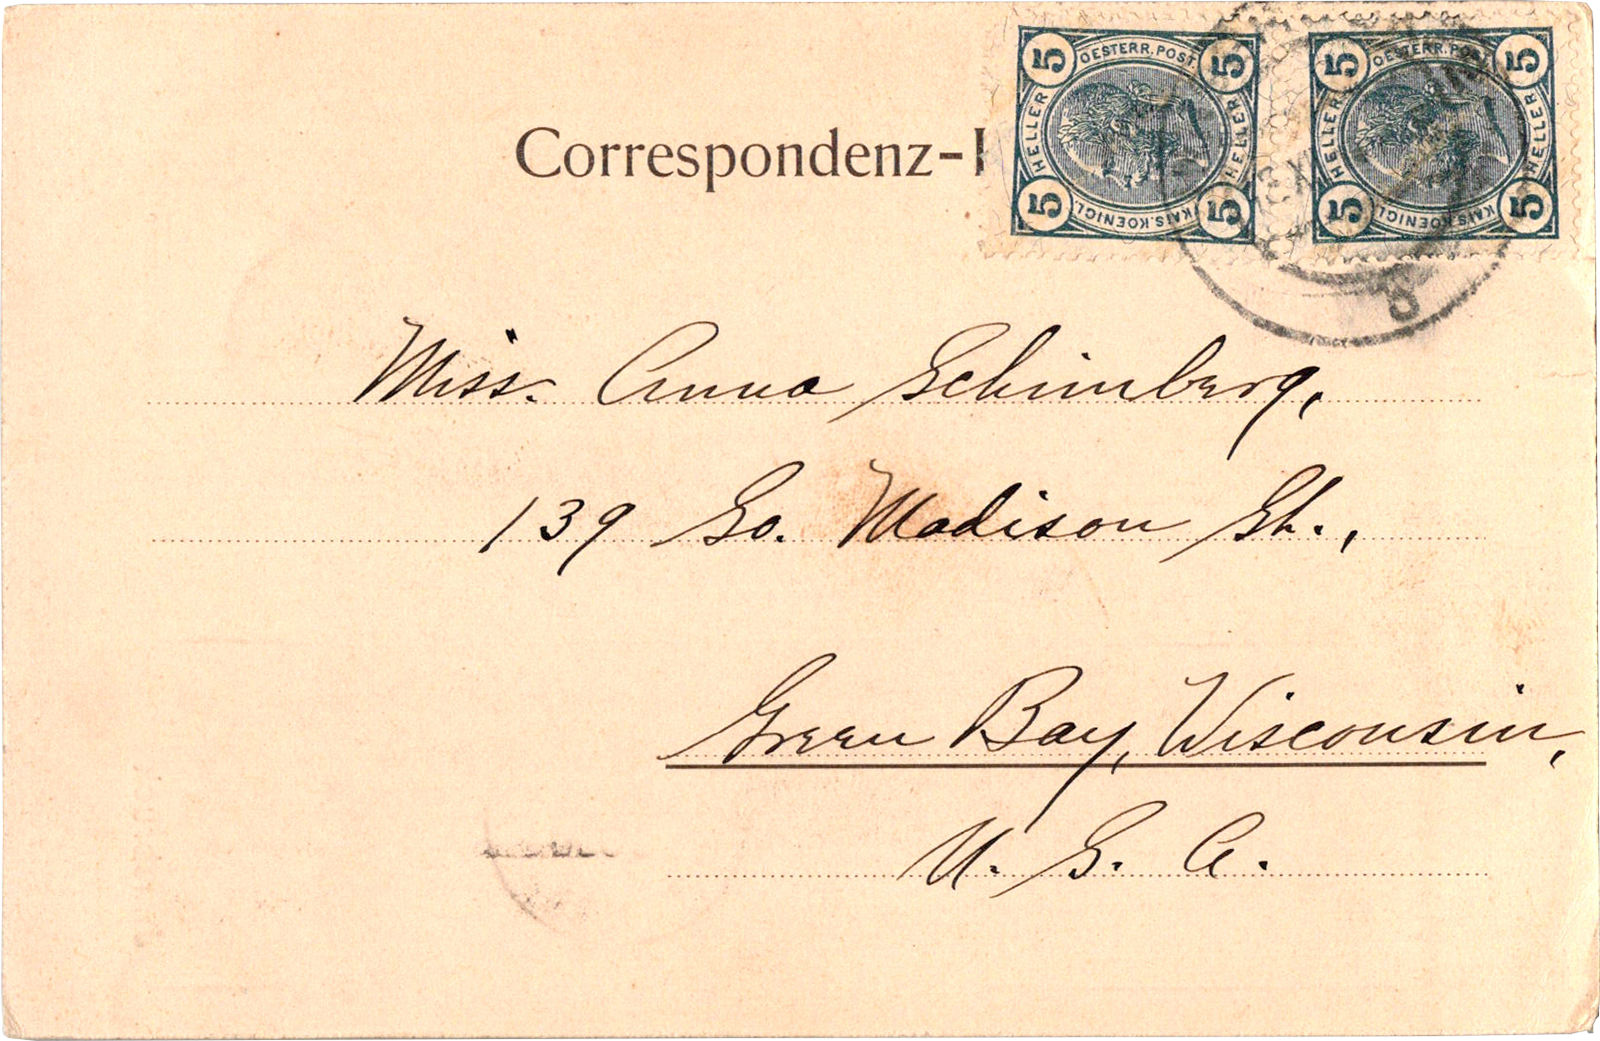 Correspondenz-
5 OESTERR. POST. 5
HELLER HELLER
5 KAIS. KOENIGL. 5
5 OESTERR. POST. 5
HELLER HELLER
5 KAIS. KOENIGL. 5
8
Miss. Anna Schimberg,
139 So. Madison St.,
Green Bay, Wisconsin,
U. S. A.